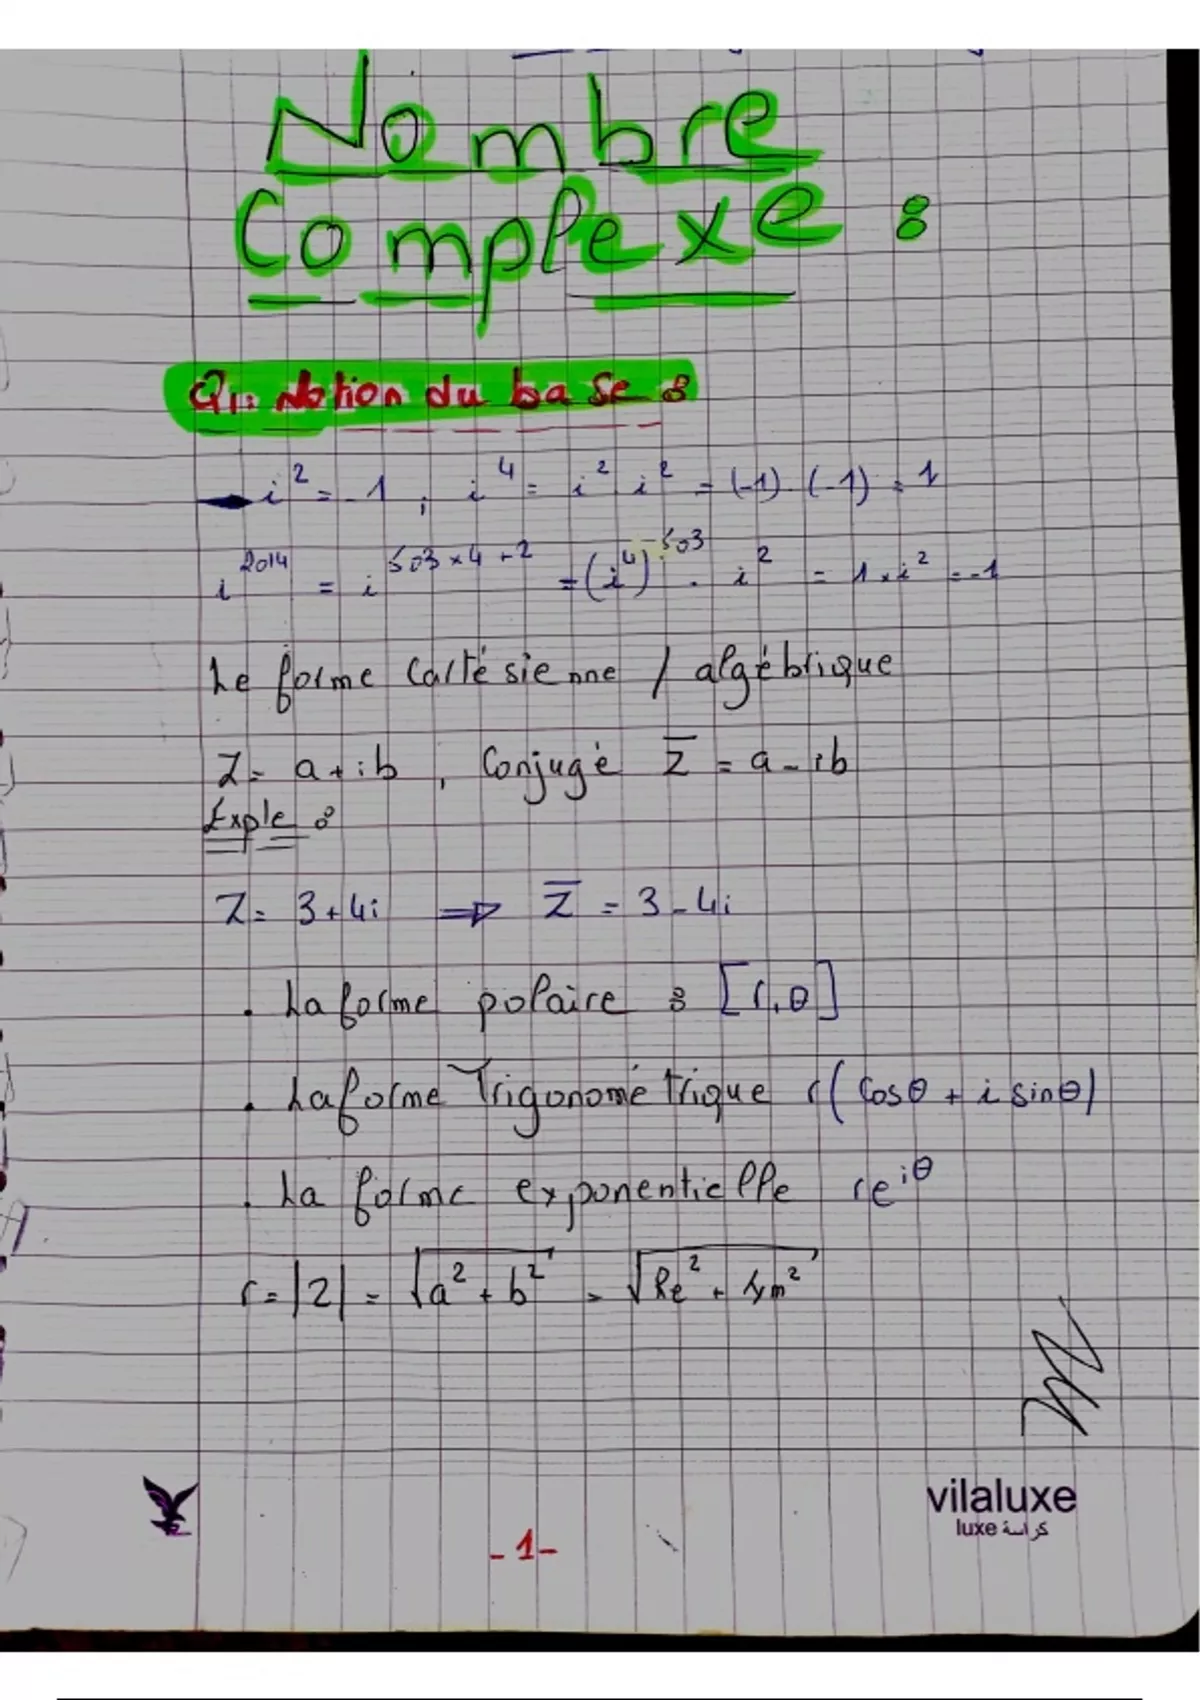 Nombre
Complexe :
Q1: Notion du base :
i² = -1 , i⁴ = i² i² = (-1) . (-1) = 1
i²⁰¹⁴ = i⁵⁰³ˣ⁴⁺² = (i⁴)⁵⁰³ . i² = 1 × i² = -1
Le forme Cartésienne / algébrique
Z = a + ib , Conjugé Z̅ = a - ib
Exple :
Z = 3 + 4i ⇒ Z̅ = 3 - 4i
. La forme polaire : [r, θ]
. La forme Trigonométrique r(cosθ + i sinθ)
. La forme exponentielle re^iθ
r = |Z| = √(a² + b²) = √(Re² + Im²)
vilaluxe
luxe كراسة
-1-